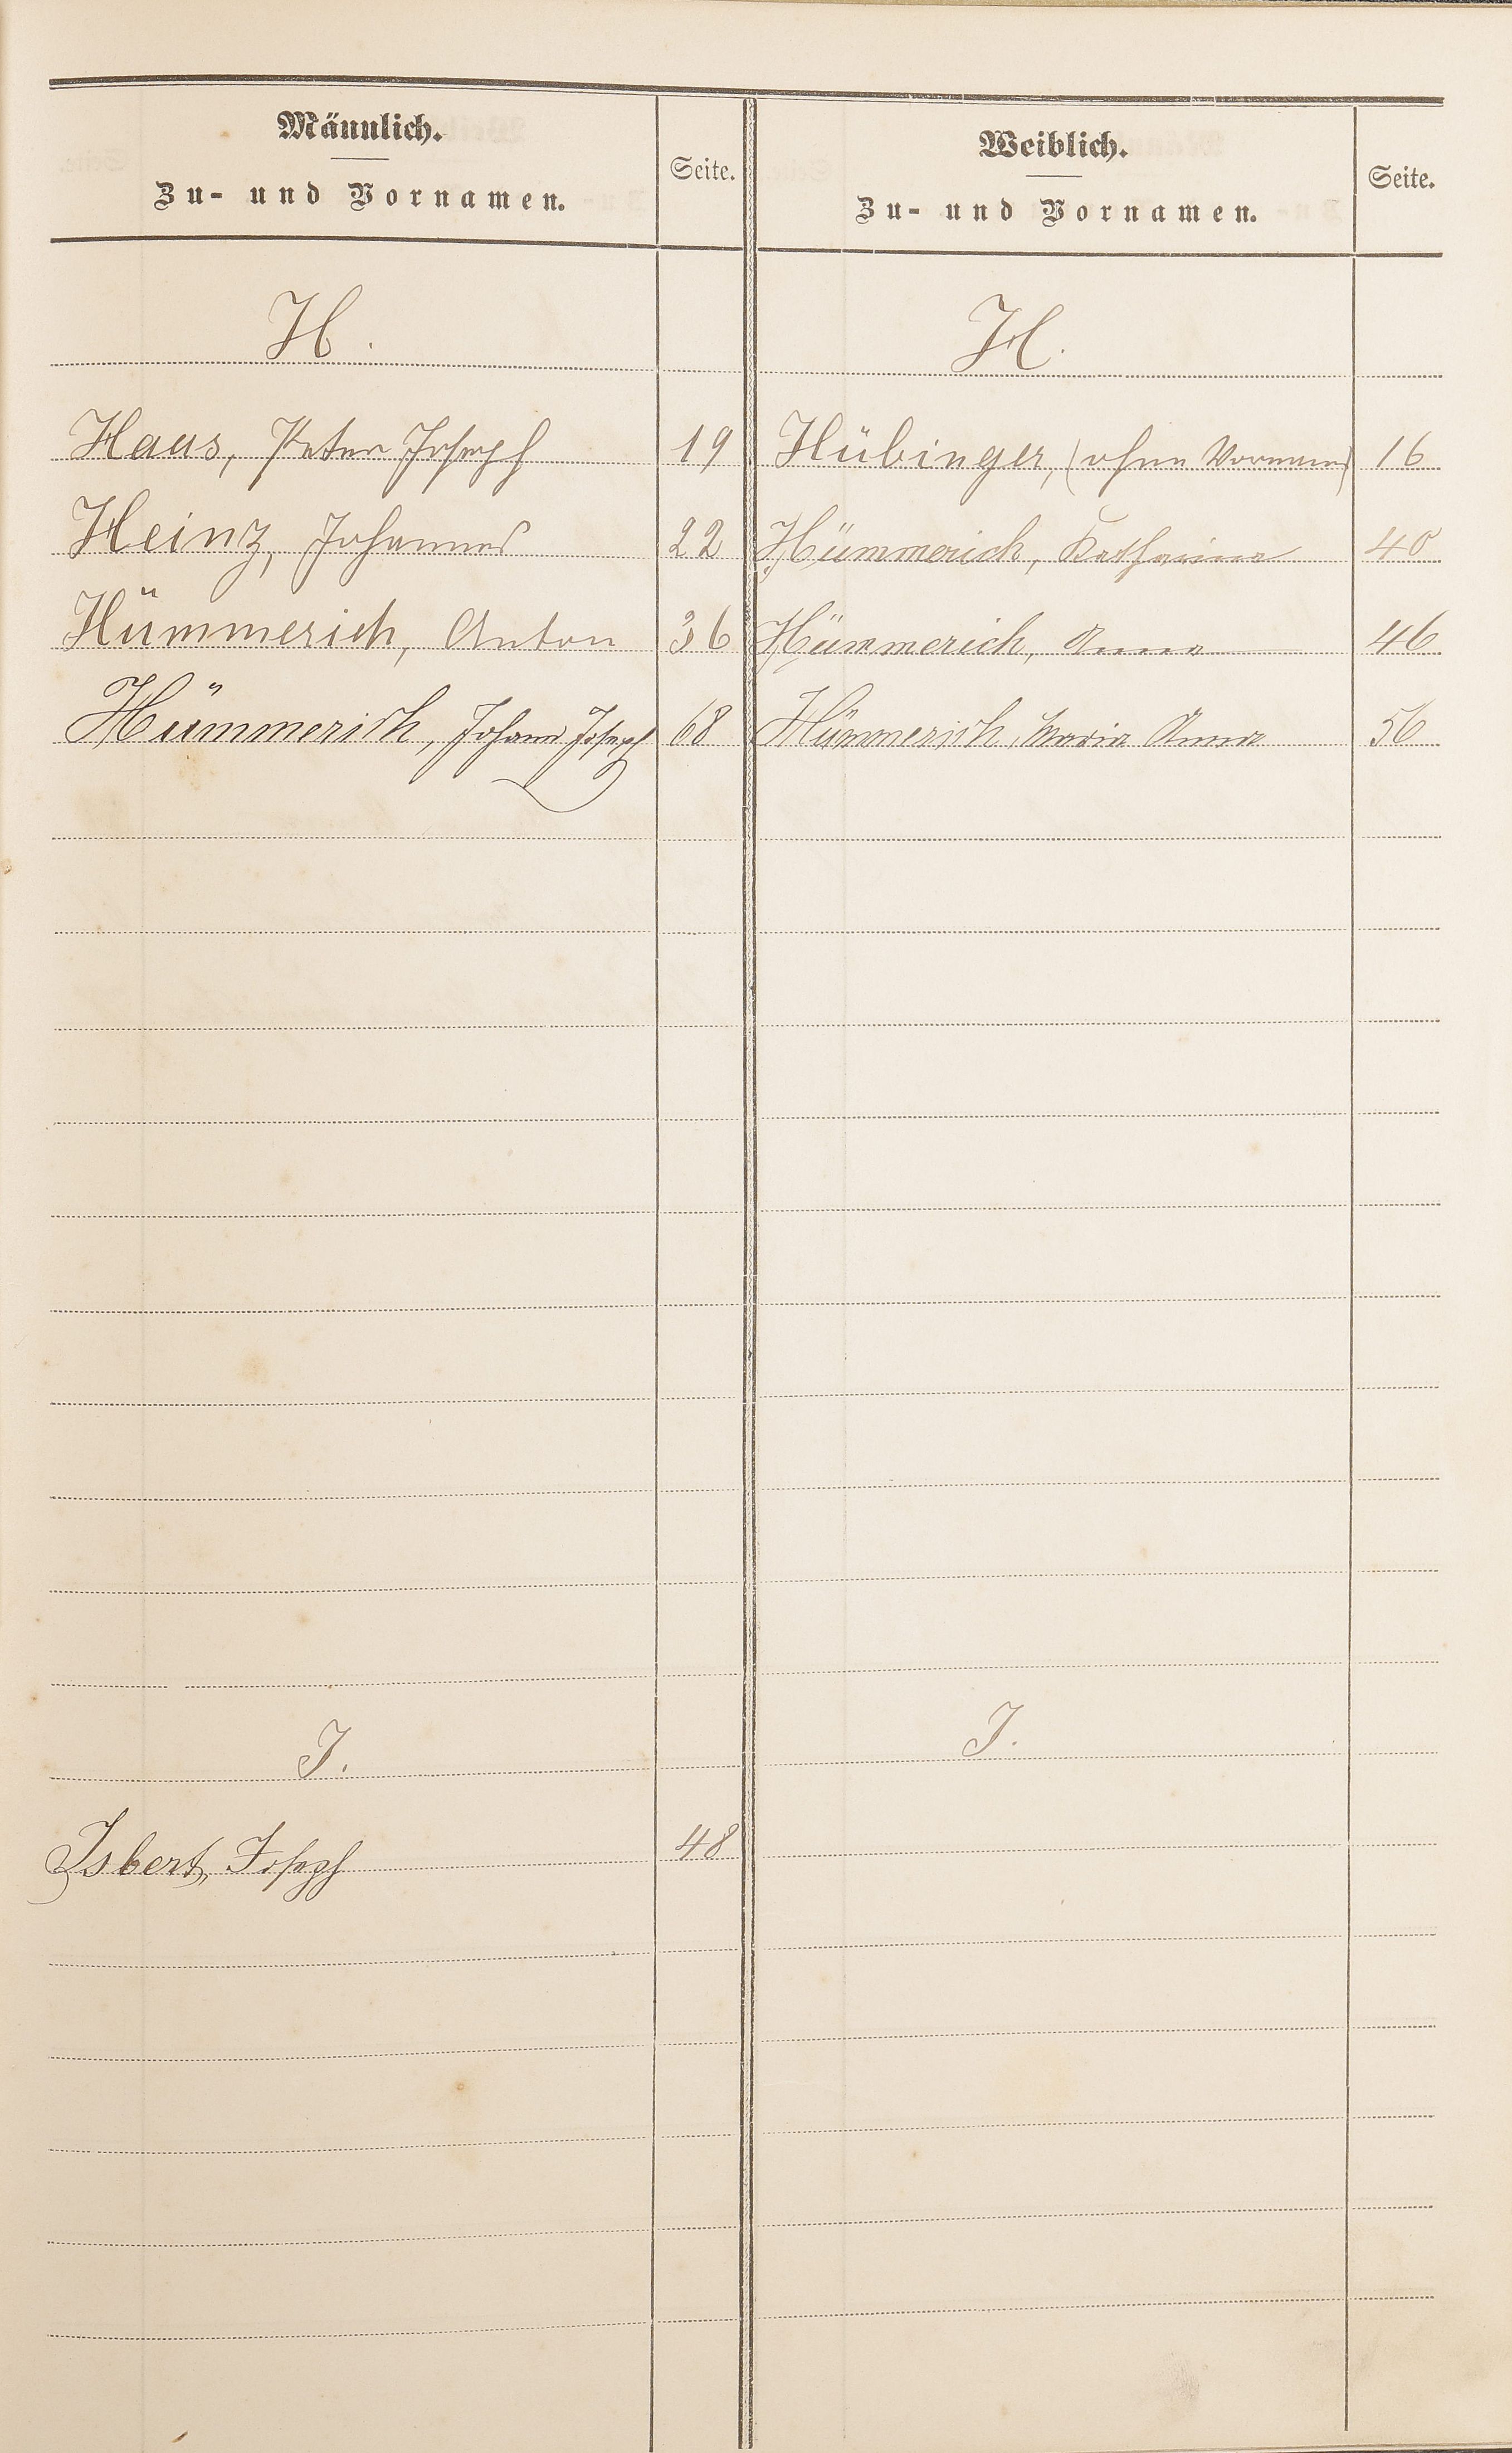 Männlich.
Zu- und Vornamen.
Seite.
Weiblich.
Zu- und Vornamen.
Seite.
H.
H.
Haus, Peter Joseph 19
Hübinger, (ohne Vornamen) 16
Heinz, Johannes 22
Hümmerich, Katharina 40
Hümmerich, Anton 36
Hümmerich, Anna 46
Hümmerich, Johann Joseph 68
Hümmerich, Maria Anna 56
J.
J.
Isbert, Joseph 48